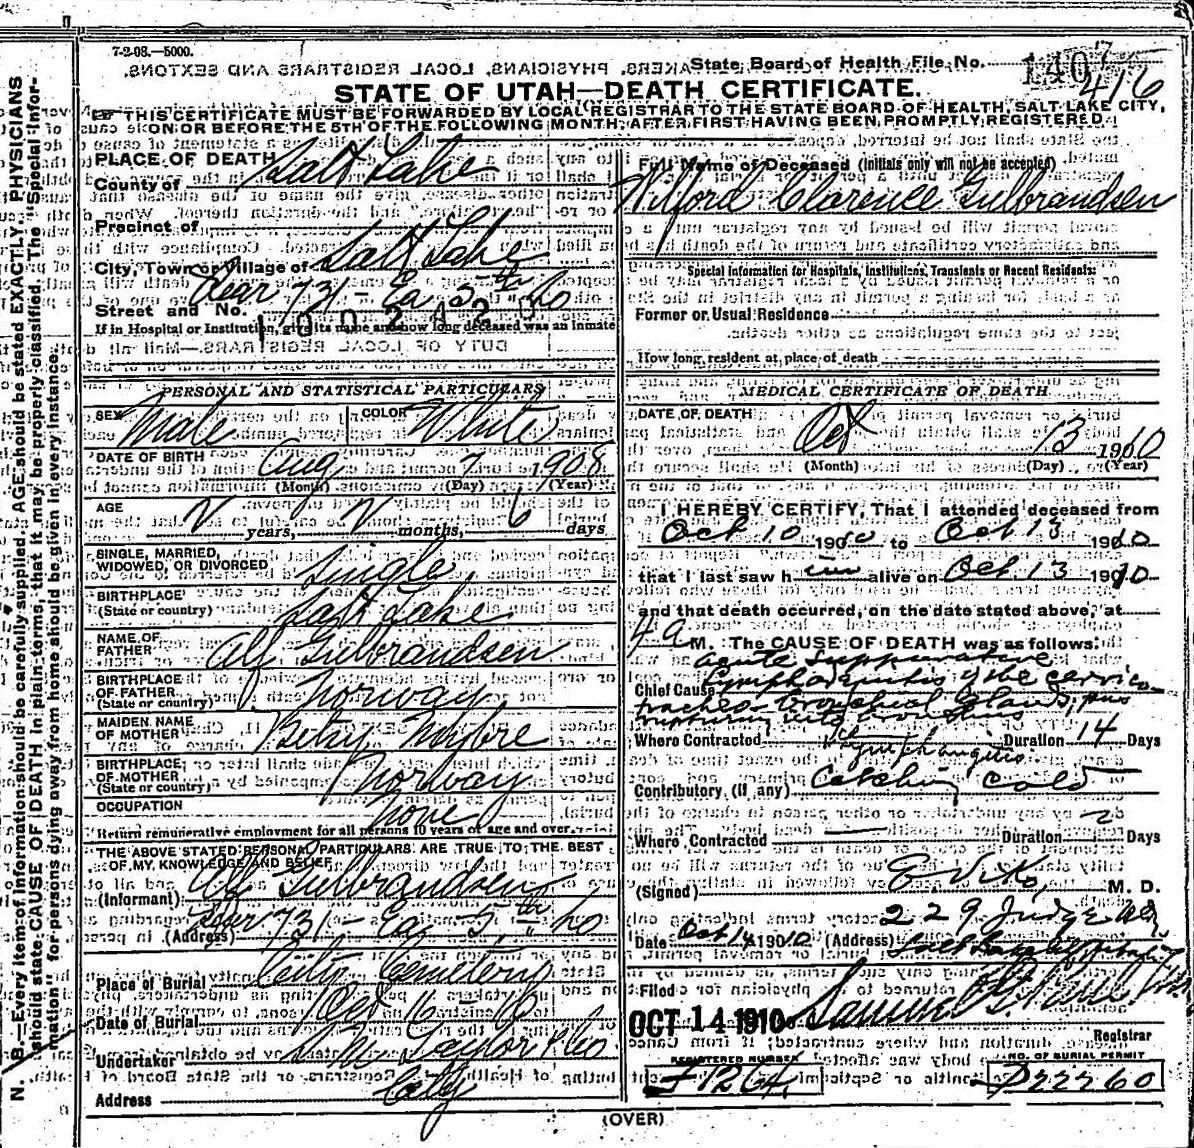 7-2-08.—5000.
State Board of Health File No. 1407
416
STATE OF UTAH—DEATH CERTIFICATE.
THIS CERTIFICATE MUST BE FORWARDED BY LOCAL REGISTRAR TO THE STATE BOARD OF HEALTH, SALT LAKE CITY,
ON OR BEFORE THE 5TH OF THE FOLLOWING MONTH, AFTER FIRST HAVING BEEN PROMPTLY REGISTERED
PLACE OF DEATH
County of Salt Lake
Precinct of
City, Town or Village of Salt Lake
Street and No. Rear 731 - Ea 5th So
If in Hospital or Institution, give its name and how long deceased was an inmate
PERSONAL AND STATISTICAL PARTICULARS
SEX Male COLOR White
DATE OF BIRTH Aug 7 1908
(Month) (Day) (Year)
AGE
2 years, 2 months, 6 days
SINGLE, MARRIED,
WIDOWED, OR DIVORCED Single
BIRTHPLACE
(State or country) Salt Lake
NAME OF
FATHER Alf Gulbrandsen
BIRTHPLACE
OF FATHER
(State or country) Norway
MAIDEN NAME
OF MOTHER Betsy
BIRTHPLACE
OF MOTHER
(State or country) Norway
OCCUPATION none
Return remunerative employment for all persons 10 years of age and over.
THE ABOVE STATED PERSONAL PARTICULARS ARE TRUE TO THE BEST
OF MY KNOWLEDGE AND BELIEF
(Informant) Alf Gulbrandsen
(Address) Rear 731 - Ea 5th So
Place of Burial City Cemetery
Date of Burial Oct 16
Undertaker S M Taylor & Co
Address City
Full Name of Deceased (Initials only will not be accepted)
Wilford Clarence Gulbrandsen
Special Information for Hospitals, Institutions, Transients or Recent Residents:
Former or Usual Residence
How long resident at place of death
MEDICAL CERTIFICATE OF DEATH
DATE OF DEATH Oct 13 1910
(Month) (Day) (Year)
I HEREBY CERTIFY, That I attended deceased from
Oct 10 1910 to Oct 13 1910
that I last saw him alive on Oct. 13 1910
and that death occurred, on the date stated above, at
4 a M. The CAUSE OF DEATH was as follows:
acute suppurative
Chief Cause Lymphadenitis of the cervico
tracheo-bronchial glands, pus
rupturing into bronchus
Where Contracted Duration 14 Days
Lymphangitis
Contributory, (if any) Catching cold
Where Contracted Duration Days
(Signed) E Viko, M. D.
Date Oct 14 1910 (Address) 229 Judge
Filed OCT 14 1910
Registrar
REGISTERED NUMBER NO. OF BURIAL PERMIT
F1264 D22260
(OVER)
N. B.—Every item of information should be carefully supplied. AGE should be stated EXACTLY. PHYSICIANS
should state CAUSE OF DEATH in plain terms, that it may be properly classified. The "Special Infor-
mation" for persons dying away from home should be given in every instance.